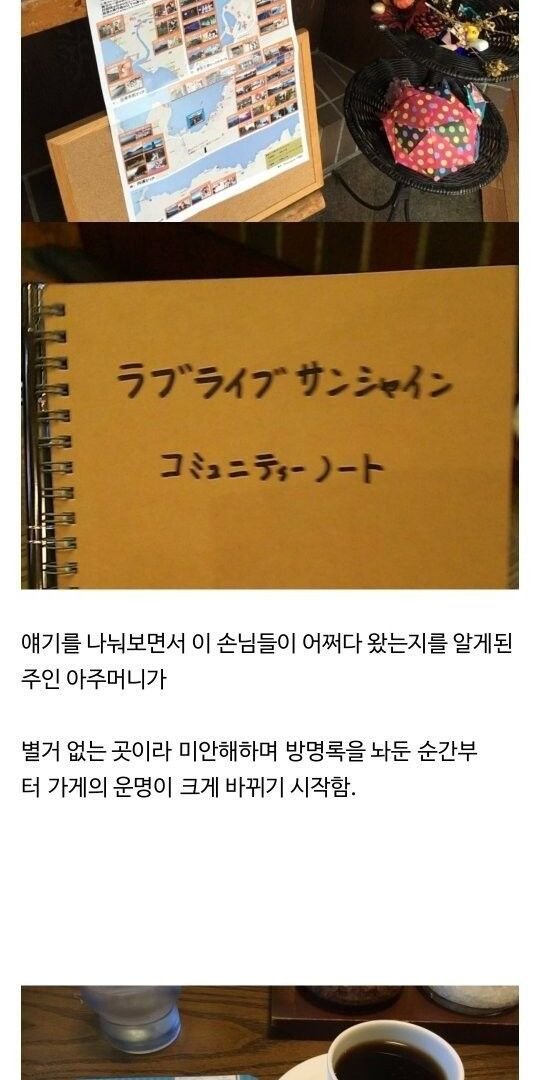 ラブライブサンシャイン
コミュニティーノート
얘기를 나눠보면서 이 손님들이 어쩌다 왔는지를 알게된
주인 아주머니가
별거 없는 곳이라 미안해하며 방명록을 놔둔 순간부
터 가게의 운명이 크게 바뀌기 시작함.